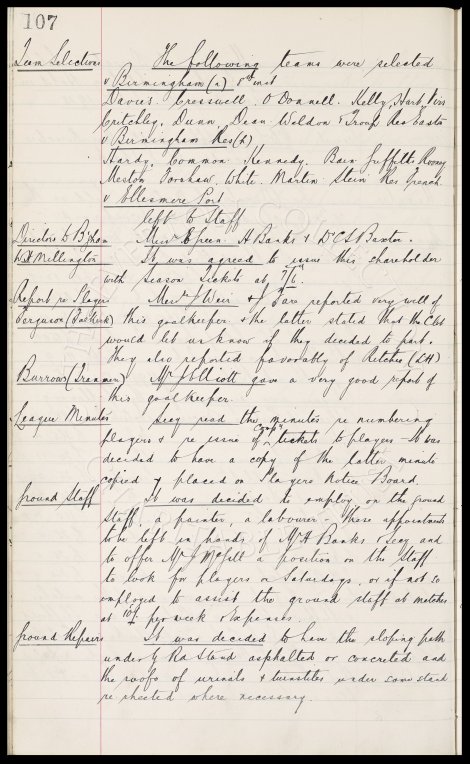 107
Team Selections The following teams were selected
v Birmingham (a) 5th inst
Davies. Cresswell. O'Donnell. Kelly, Hart, Virr
Critchley. Dunn. Dean Weldon & Troup Res Easton
v Birmingham Res (h)
Hardy. Common. Kennedy. Bain Griffiths Rooney
Meston Forshaw. White. Martin Stein Res French
v Ellesmere Port
left to Staff
Directors to B'gham Messrs E Green. A Banks & Dr C S Baxter.
Millington It was agreed to issue this shareholder
with Season Tickets at 7/6.
Report re Player Messrs Weir & Fare reported very well of
Ferguson (Falkirk) this goalkeeper. & the latter stated that the Club
would let us know if they decided to part.
They also reported favorably of Ritchie (LH)
Burrows (Tranmere) Mr J Elliott gave a very good report of
this goalkeeper.
League Minutes Secy read the minutes re numbering
players & re issue of Comp tickets to players - It was
decided to have a copy of the latter minute
copied & placed on Players Notice Board.
Ground Staff It was decided to employ on the ground
Staff, a painter, a labourer - these appointments
to be left in hands of Mr A Banks & Secy and
to offer Mr J McFall a position on the staff
to look for players on Saturdays, or if not so
employed to assist the ground staff at matches
at 10/- per week & expenses.
Ground Repairs It was decided to have the sloping path
under G Rd Stand asphalted or concreted and
the roofs of urinals & turnstiles under same stand
re sheeted where necessary.